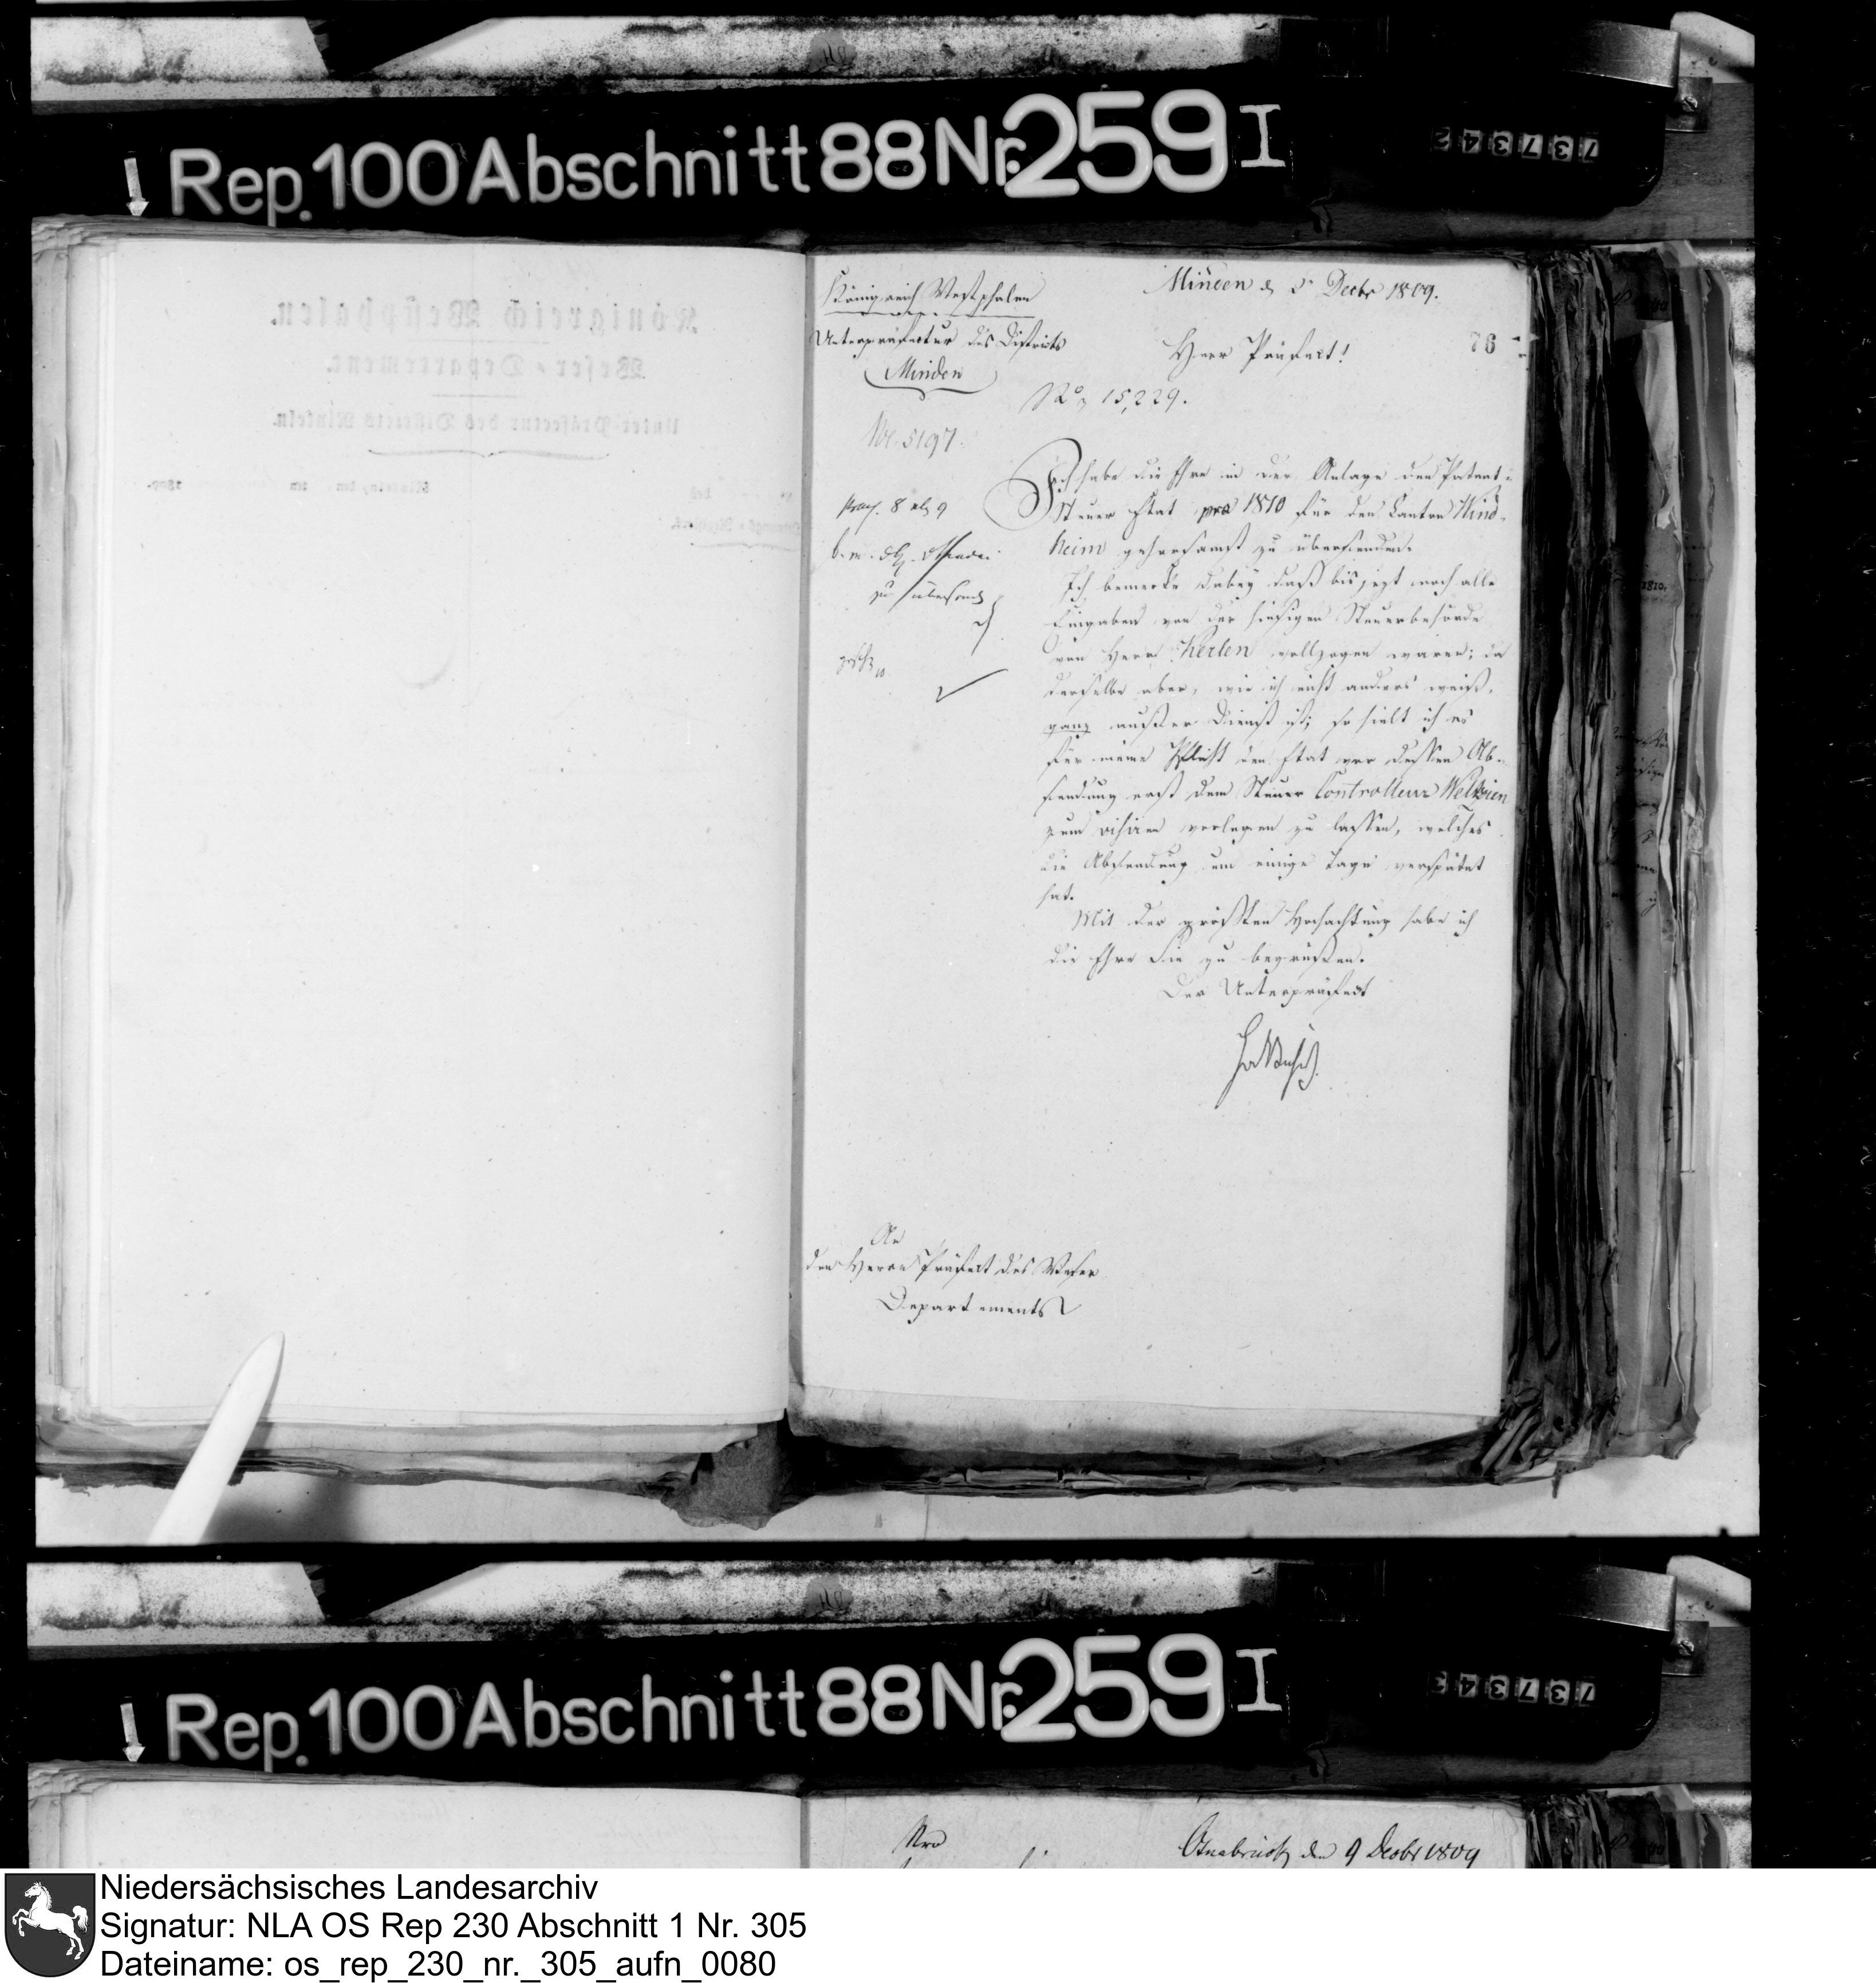 Rep. 100 Abschnitt 88 Nr. 259 I
737342
Königreich Westphalen.
Weser-Departement.
Unter-Präfectur des Districts Rinteln.
Rinteln, den im 1809.
Königreich Westphalen
Unterpräfectur des Districts
Minden
Nr. 5197.
Minden d 5 Decbr 1809.
76
Herr Präfect!
No 15,229.
Ich habe die Ehre in der Anlage den Patent-
Steuer Etat pro 1810 für den Canton Wind-
heim gehorsamst zu übersenden.
Ich bemerke dabey daß bis jezt noch alle
Eingaben von der hiesigen Steuerbehörde
von Herrn Kerlen vollzogen waren; da
derselbe aber, wie ich nicht anders weiß,
ganz außer Dienst ist; so hielt ich es
für meine Pflicht den Etat vor dessen Ab-
sendung erst dem Steuer Controlleur Weltzien
zum visiren vorlegen zu lassen, welches
die Absendung um einige Tage verspätet
hat.
Mit der größten Hochachtung habe ich
die Ehre Sie zu begrüßen.
Der Unterpräfect
An
den Herrn Präfect des Weser
Departements
1810.
Rep. 100 Abschnitt 88 Nr. 259 I
737343
Nro
Osnabrück den 9 Decbr 1809
Niedersächsisches Landesarchiv
Signatur: NLA OS Rep 230 Abschnitt 1 Nr. 305
Dateiname: os_rep_230_nr._305_aufn_0080